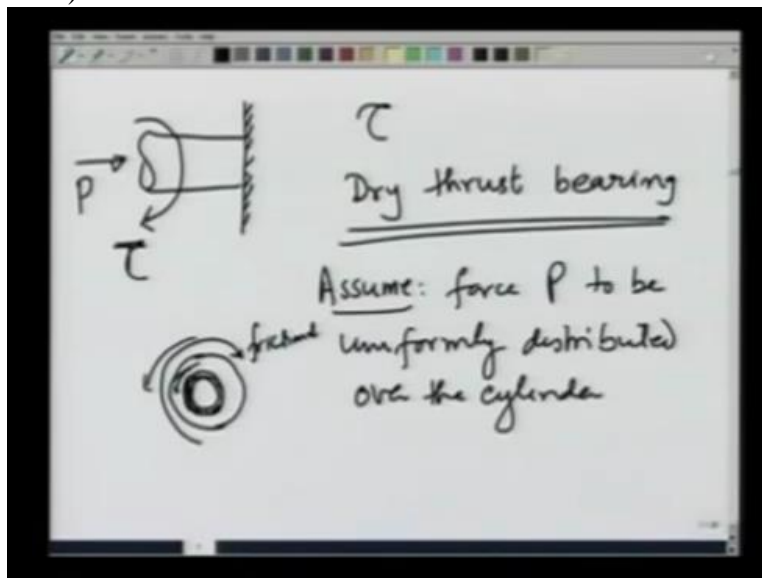 τ
Dry thrust bearing
P
τ
Assume: force P to be
uniformly distributed
over the cylinder
friction